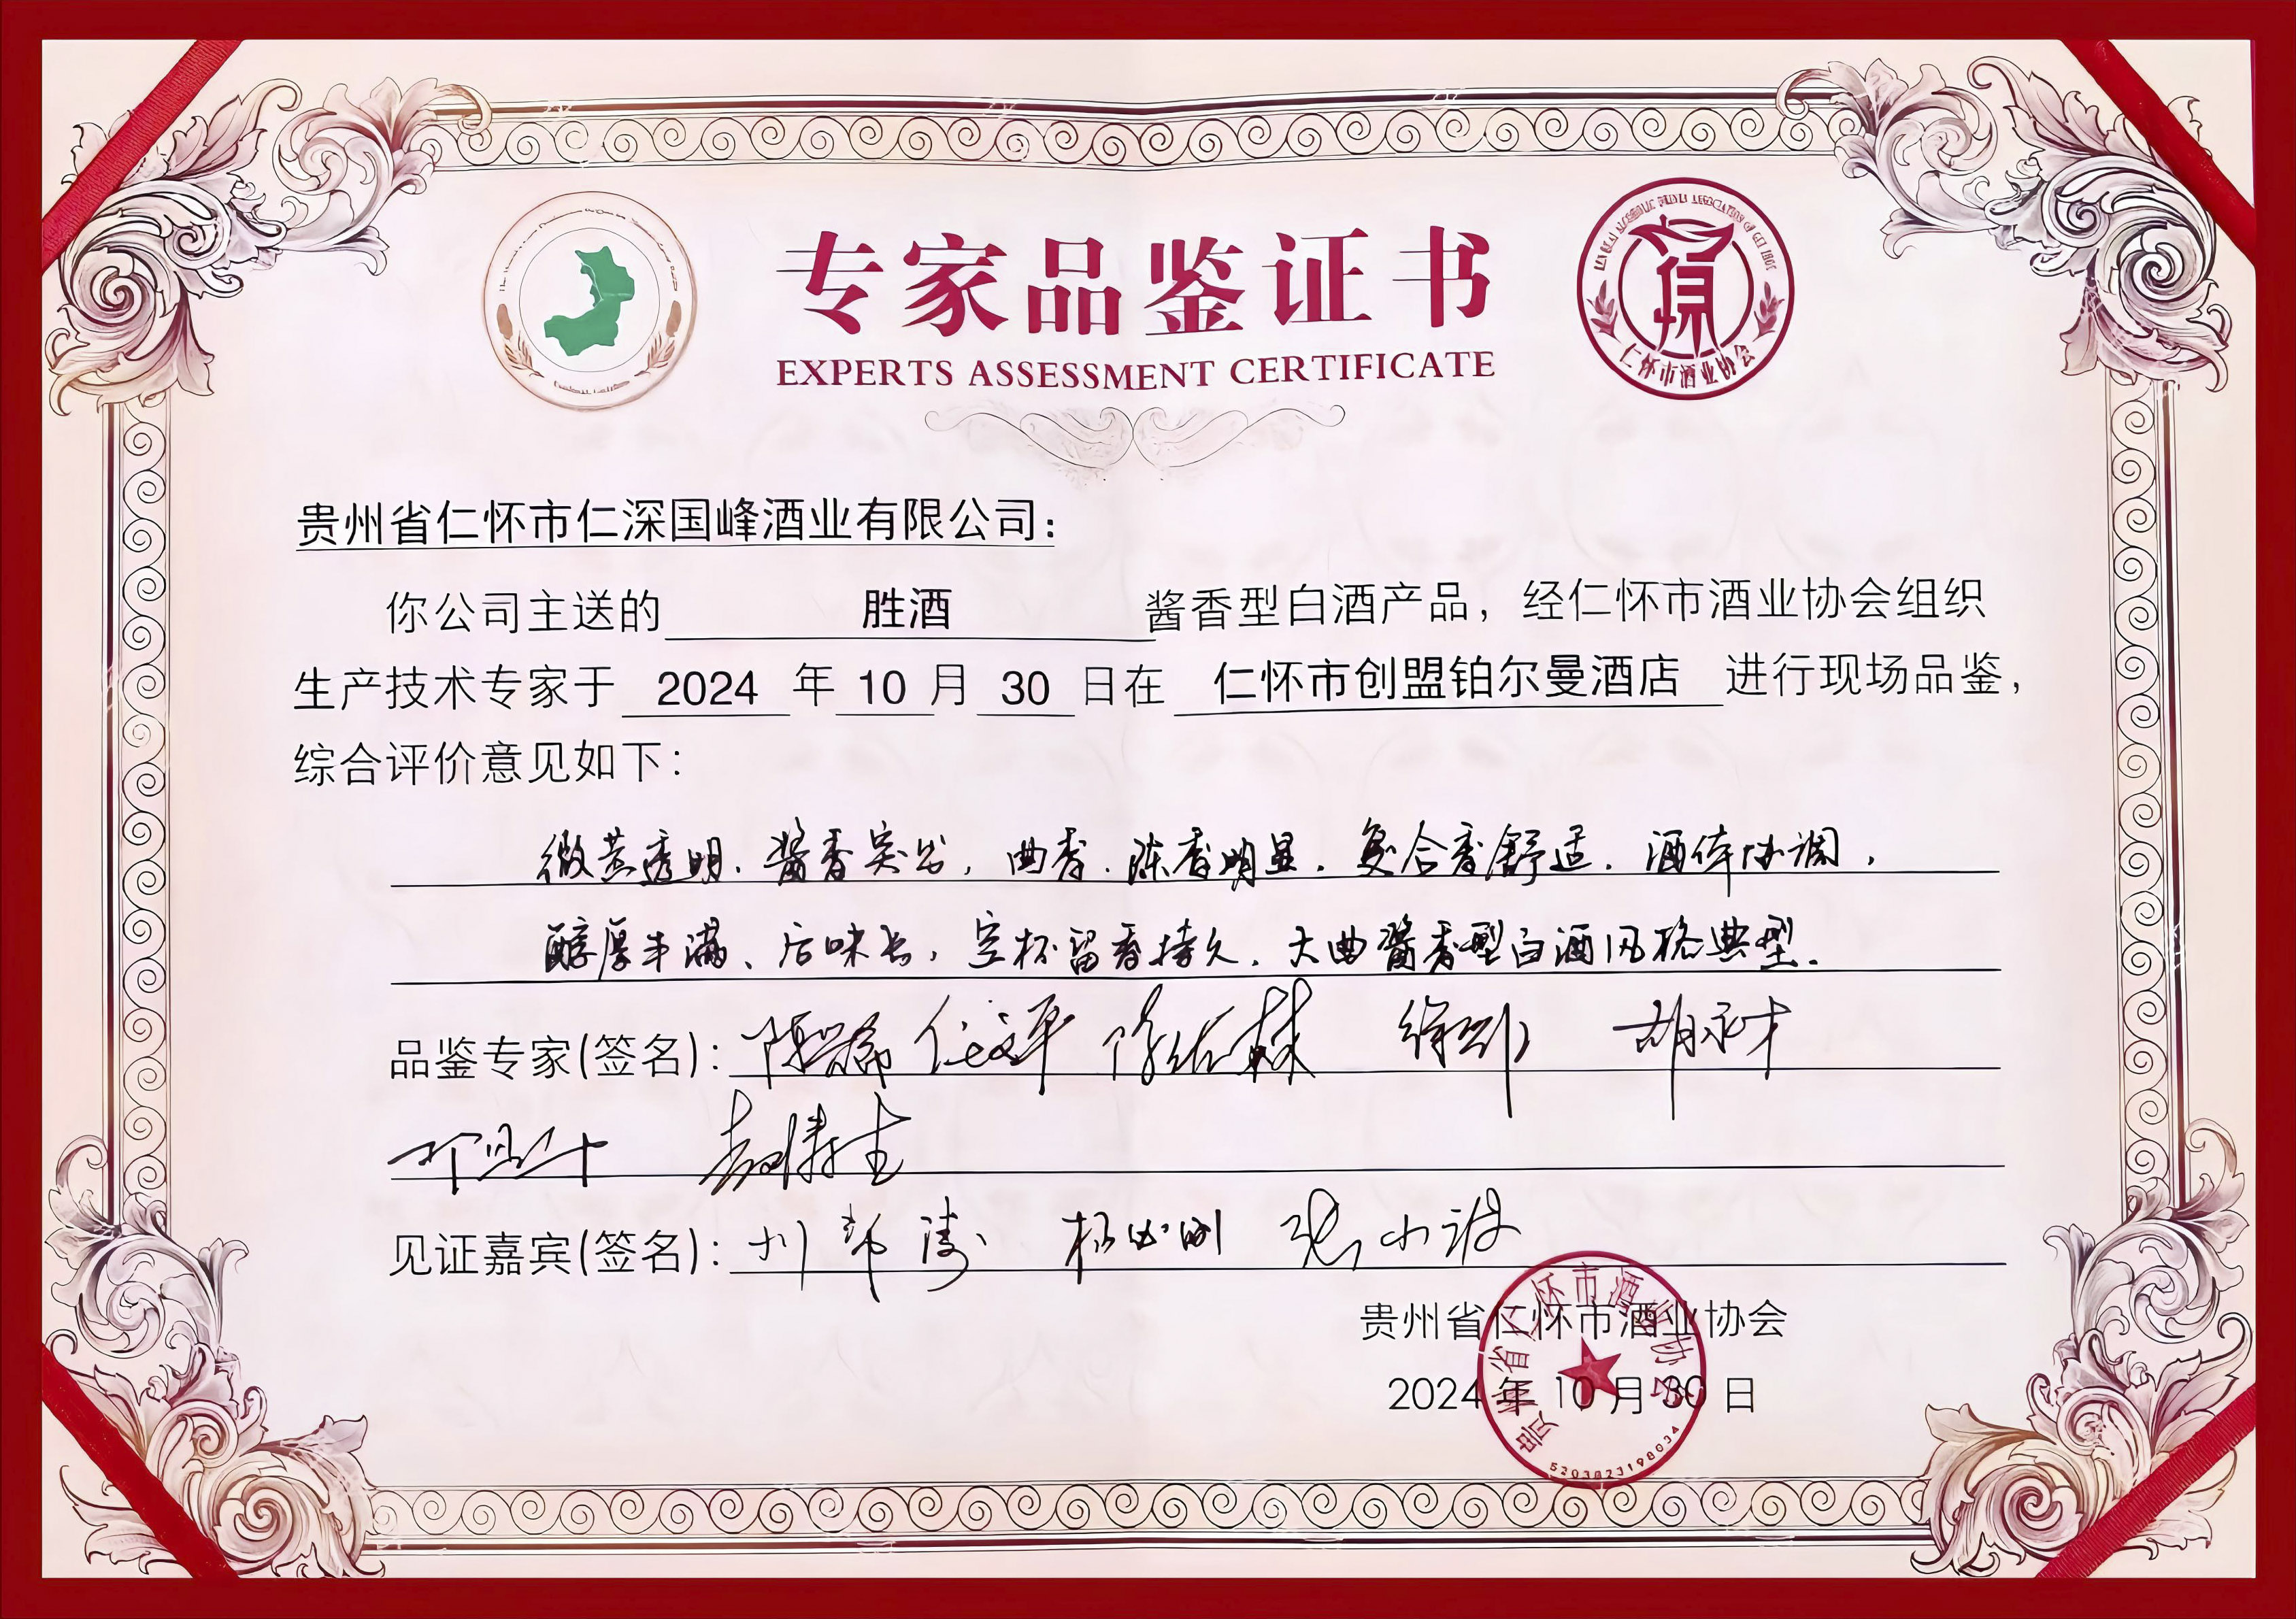 专家品鉴证书
EXPERTS ASSESSMENT CERTIFICATE
仁怀市酒业协会
贵州省仁怀市仁深国峰酒业有限公司：
你公司主送的 胜酒 酱香型白酒产品，经仁怀市酒业协会组织
生产技术专家于 2024 年 10 月 30 日在 仁怀市创盟铂尔曼酒店 进行现场品鉴，
综合评价意见如下：
微黄透明、酱香突出，曲香、陈香明显，复合香舒适，酒体协调，
醇厚丰满、后味长，空杯留香持久，大曲酱香型白酒风格典型。
品鉴专家(签名)：
胡永才
见证嘉宾(签名)：
张小波
贵州省仁怀市酒业协会
2024 年 10 月 30 日
贵州省仁怀市酒业协会
5203823198034